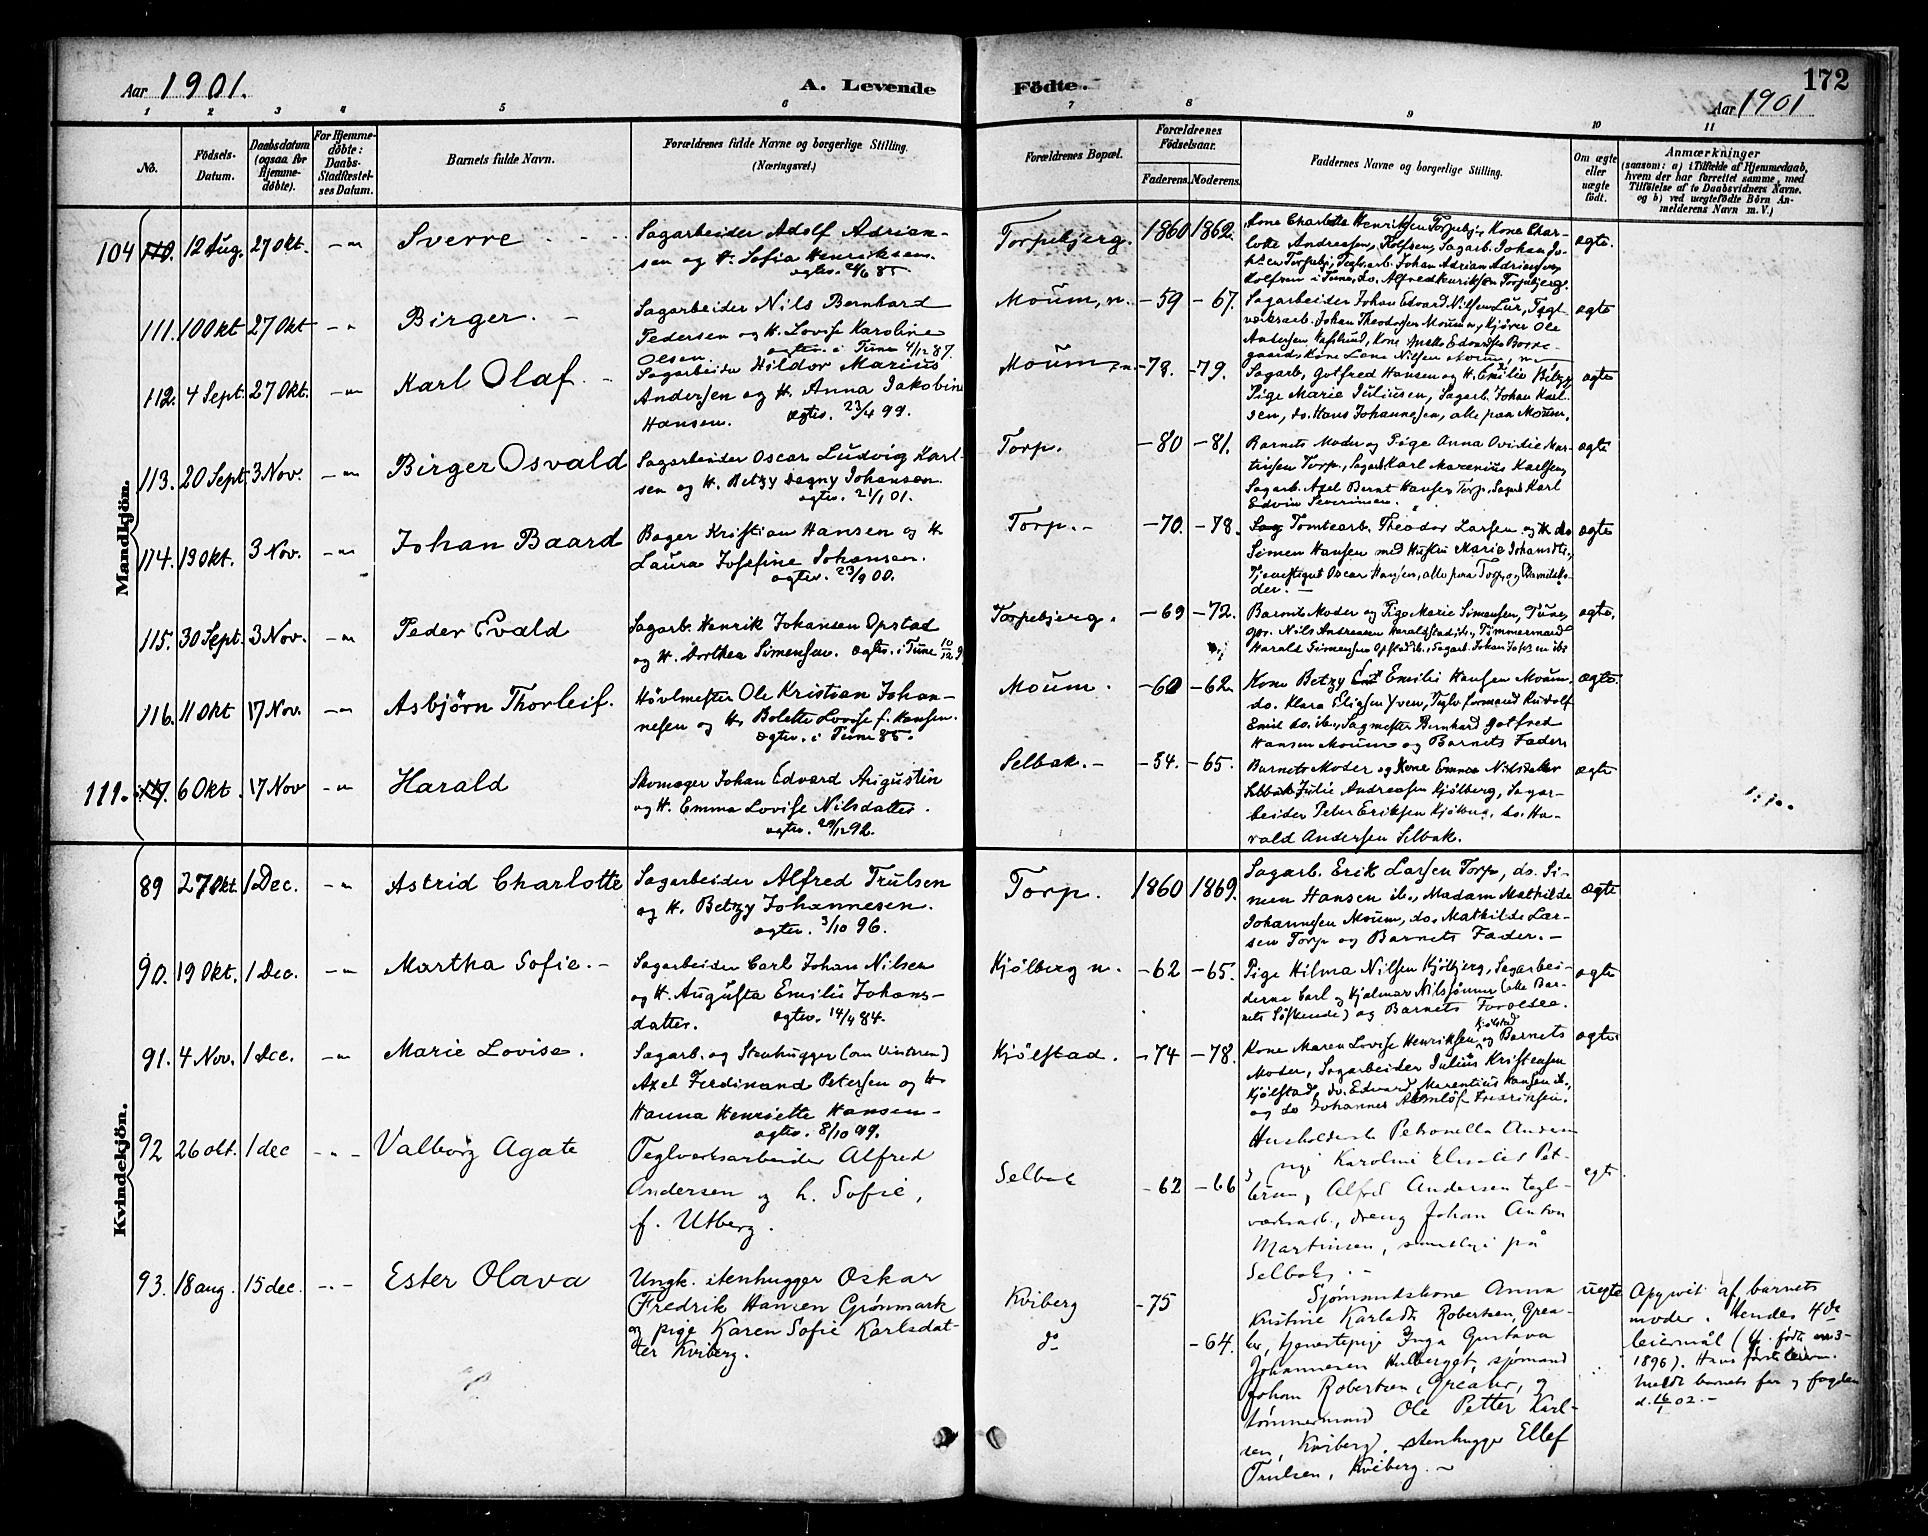 172
Aar 1901. A. Levende
Födte. Aar 1901
1 2 3 4 5 6 7 8 9 10 11
No.
Födsels-Datum.
Daabsdatum (ogsaa for Hjemme-døbte).
For Hjemme-døbte: Daabs-Stadfæstel-ses Datum.
Barnets fulde Navn.
Forældrenes fulde Navne og borgerlige Stilling. (Næringsvei.)
Forældrenes Bopæl.
Forældrenes Födselsaar.
Faderens. Moderens.
Faddernes Navne og borgerlige Stilling.
Om ægte eller uægte født.
Anmærkninger
(saasom: a) i Tilfælde af Hjemmedaab,
hvem der har forrettet samme, med
Tilføielse af to Daabsvidners Navne.
og b) ved uægtefødte Börn An-
melderens Navn m. V.)
Mandkjön.
104 110. 12 Aug. 27 Okt. Sverre
Sagarbeider Adolf Adrian-
sen og H. Sofia Henriksen.
Torpebjerg. 1860 1862.
Kone Charlotte Henriksen Torpebj., Kone Char-
lotte Andreassen, Rolfsøen, Sagarb. Johan Jo-
ægte.
111. 10 Okt 27 Okt Birger.
Sagarbeider Nils Bernhard
Pedersen og H. Lovise Karoline
Olsen. ægtev. i Tune 4/12 87.
Moum, n. -59 -67.
Sagarbeider Johan Edvard Nilsen Lur, Tegl-
værksarb. Johan Theodorsen Moum n, Kjører Ole
ægte
112. 4 Sept. 27 Okt. Karl Olaf.
Sagarbeider Hildor Marius
Andersen og H. Anna Jakobine
Hansen. ægtev. 23/4 99.
Moum, n. -78. -79.
Sagarb. Gotfred Hansen og H. Emilie
Pige Marie Juliussen, Sagarb. Johan Karl-
sen, do. Hans Johannesen, alle paa Moum.
ægte
113. 20 Sept. 3 Nov. Birger Osvald
Sagarbeider Oscar Ludvig Karl-
sen og H. Betzy Dagny Johansen.
ægtev. 21/1 01.
Torp. -80 -81.
Barnets Moder og Pige Anna Ovidie Mar-
tinsen Torp, Sagarb. Karl Marenius Karlsen,
Sagarb. Axel Bernt Hansen Torp, Sagarb. Karl
Edvin Severinsen.
ægte
114. 19 Okt. 3 Nov. Johan Baard
Bager Kristian Hansen og H.
Laura Josefine Johansen.
ægtev. 23/9 00.
Torp. -70. -78.
Tomtearb. Theodor Larsen og H. do
Simen Hansen med Hustru Maria
Tjenestegut Oscar Hansen, alle paa Torp, og Barnets Fa-
der.
ægte
115. 30 Sept. 3 Nov. Peder Evald
Sagarb. Henrik Johansen Opstad
og H. Dorthea Simensen. ægtev. i Tune 10/12 9
Torpebjerg. -69 -72.
Barnets Moder og Pige Marie Simensen, Tune,
Nils Andreasen Haraldstad, Tømmermand
Harald Simensen
ægte.
116. 11 Okt 17 Nov. Asbjørn Thorleif.
Høvlmester Ole Kristian Johan-
nesen og H. Bolette Lovise f. Hansen.
ægtev. i Tune 85.
Moum. -60 -62.
Kone Betzy Emilie Hansen Moum.
do. Klara Eliasen Yven, Teglv. formand Rudolf
Emil do. ib., Sagmester Bernhard Gotfred
Hansen Moum og Barnets Fader.
ægte.
111. 117. 6 Okt. 17 Nov Harald
Skomager Johan Edvard Augustin
og H. Emma Lovise Nilsdatter.
ægtev. 29/12 92.
Selbak. -54. -65.
Barnets Moder og Kone Emma Nilsdatter
Selbak, Julie Andreasen Kjølberg, Sagar-
beider Peter Eriksen Kjølberg, do. Ha-
rald Andersen Selbak.
ægte
Kvindekjön.
89 27 Okt. 1 Dec. Astrid Charlotte
Sagarbeider Alfred Trulsen
og H. Betzy Johannesen.
ægtev. 3/10 96.
Torp. 1860 1869.
Sagarb. Erik Larsen Torp, do. Si-
men Hansen ib., Madam Mathilde
Johannesen Moum, do. Mathilde Lar-
sen Torp og Barnets Fader.
ægte
90. 19 Okt. 1 Dec. Martha Sofie.
Sagarbeider Carl Johan Nilsen
og H. Augusta Emilie Johans-
datter. ægtev. 14/4 84.
Kjølberg n. -62 -65.
Pige Hilma Nilsen Kjølbjerg, Sagarbei-
derne Carl og Hjalmar Nilssønner (alle Bar-
nets Søskende) og Barnets Forældre.
ægte
91. 4 Nov. 1 Dec. Marie Lovise.
Sagarb. og Stenhugger (om Vinteren)
Axel Ferdinand Petersen og H.
Hanna Henriette Hansen.
ægtev. 8/10 99.
Kjølstad. -74 -78.
Kone Maren Lovise Henriksen Kjølstad og Barnets
Moder, Sagarbeider Julius Kristensen
Kjølstad, do. Edvard Marentius Hansen ib.,
og do Johannes Almlöf Fredriksen.
ægte
92 26 okt. 1 dec Valborg Agate
Teglverksarbeider Alfred
Andersen og h. Sofie,
f. Utberg.
Selbak -62 -66
Husholderske Petronella Ander-
sen, pige Karoline Elisabet Pet-
tersen, Alfred Andersen tegl-
værksarb., dreng Johan Anton
Martinsen, samtlige på
Selbak.
egte
93. 18 aug. 15 dec. Ester Olava
Ungk. stenhugger Oskar
Fredrik Hansen Grönmark
og pige Karen Sofie Karlsdat-
ter Kviberg.
Kviberg -75
do -64.
Sjømandskone Anna
Kristine Karlsdt. Robertsen, Grea-
ker, tjenestepige Inga Gustava
Johannesen sjømand
Johan Robertsen, Greaker, og
tømmermand Ole Petter Karl-
sen, Kviberg. stenhugger Ellef
Trulsen, Kviberg.
uegte
Opgivet af barnets
moder. Hendes 4de
leiermål (
1896). Hans første leierm.
Meldt barnets far og fogden
d. 16/1 02.